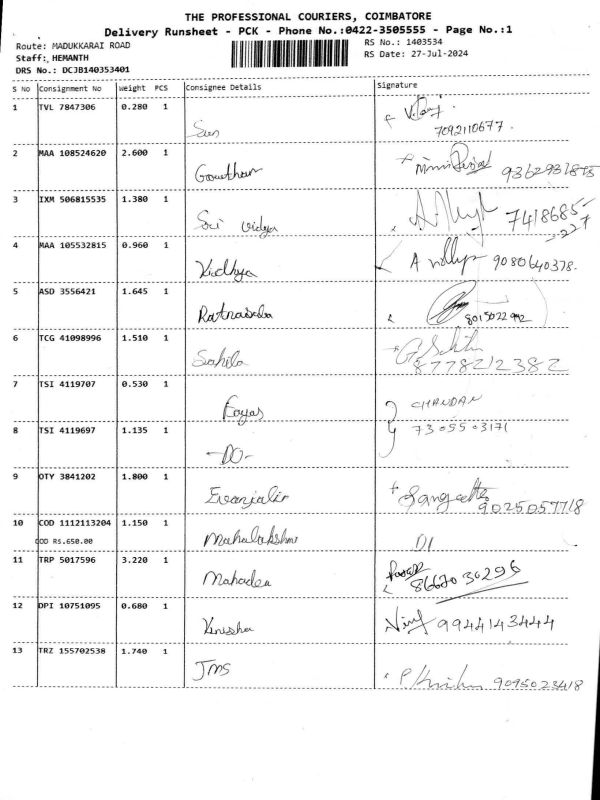 THE PROFESSIONAL COURIERS, COIMBATORE
Delivery Runsheet - PCK - Phone No.:0422-3505555 - Page No.:1
Route: MADUKKARAI ROAD RS No.: 1403534
Staff: HEMANTH RS Date: 27-Jul-2024
DRS No.: DCJB140353401
S No Consignment No Weight PCS Consignee Details Signature
1 TVL 7847306 0.280 1
7092110677.
2 MAA 108524620 2.600 1 Gowtham
3 IXM 506815535 1.380 1 Sri Vidya 7418685
227
4 MAA 105532815 0.960 1 Vidhya 9080640378.
5 ASD 3556421 1.645 1 8015022992
6 TCG 41098996 1.510 1 8778212382
7 TSI 4119707 0.530 1 Fayas CHANDAN
8 TSI 4119697 1.135 1 -DO- 7305503171
9 OTY 3841202 1.800 1 Evanjalin Sangeetha 9025057718
10 COD 1112113204 1.150 1 Mahalakshmi
COD RS.650.00
11 TRP 5017596 3.220 1 Mahadev 8667030296
12 DPI 10751095 0.680 1 9944143444
13 TRZ 155702538 1.740 1 JMS 9095023418